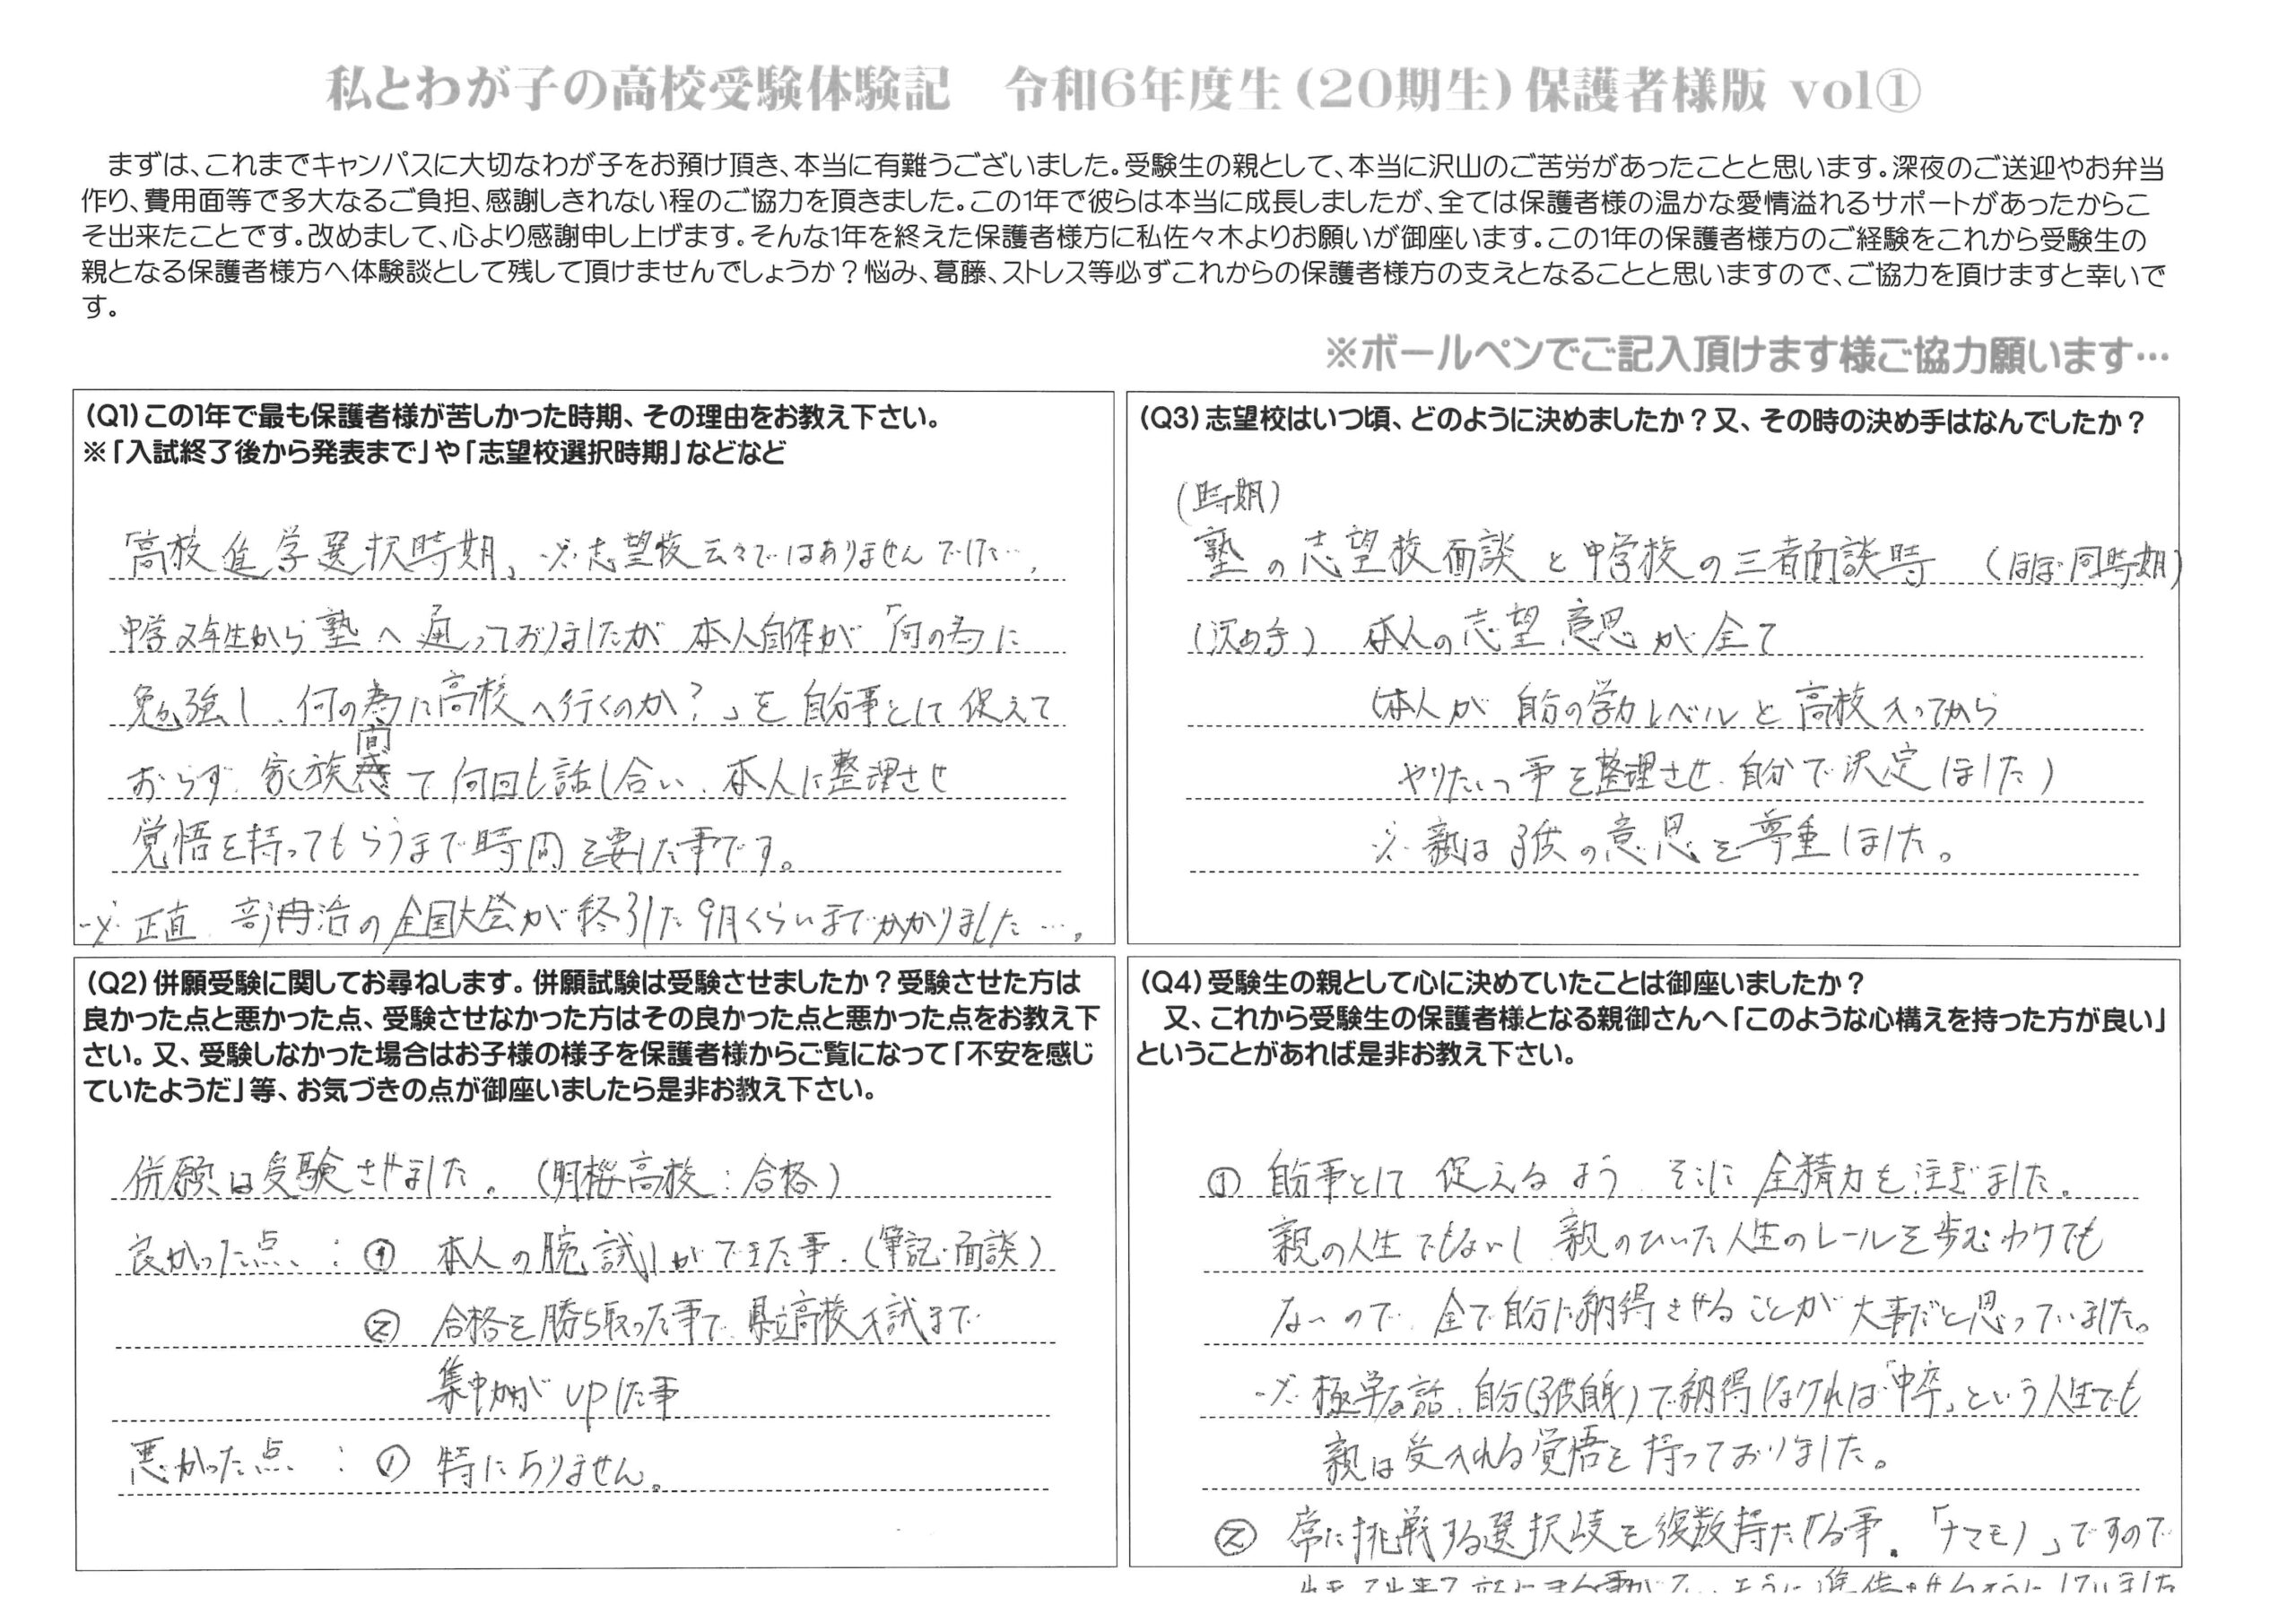 私とわが子の高校受験体験記　令和6年度生(20期生)保護者様版 vol①
まずは、これまでキャンパスに大切なわが子をお預け頂き、本当に有難うございました。受験生の親として、本当に沢山のご苦労があったことと思います。深夜のご送迎やお弁当
作り、費用面等で多大なるご負担、感謝しきれない程のご協力を頂きました。この1年で彼らは本当に成長しましたが、全ては保護者様の温かな愛情溢れるサポートがあったからこ
そ出来たことです。改めまして、心より感謝申し上げます。そんな1年を終えた保護者様方に私佐々木よりお願いが御座います。この1年の保護者様方のご経験をこれから受験生の
親となる保護者様方へ体験談として残して頂けませんでしょうか？悩み、葛藤、ストレス等必ずこれからの保護者様方の支えとなることと思いますので、ご協力を頂けますと幸いで
す。
※ボールペンでご記入頂けます様ご協力願います…
(Q1)この1年で最も保護者様が苦しかった時期、その理由をお教え下さい。
※「入試終了後から発表まで」や「志望校選択時期」などなど
高校進学選択時期、※志望校云々ではありませんでした…。
中学2年生から塾へ通っておりましたが 本人自体が「何の為に
勉強し、何の為に高校へ行くのか？」を自分事として促えて
おらず、家族間で何回も話し合い、本人に整理させ
覚悟を持ってもらうまで時間を要した事です。
※正直 部活の全国大会が終了した9月くらいまでかかりました…。
(Q2)併願受験に関してお尋ねします。併願試験は受験させましたか？受験させた方は
良かった点と悪かった点、受験させなかった方はその良かった点と悪かった点をお教え下
さい。又、受験しなかった場合はお子様の様子を保護者様からご覧になって「不安を感じ
ていたようだ」等、お気づきの点が御座いましたら是非お教え下さい。
併願は受験させました。(明桜高校：合格)
良かった点：① 本人の腕試しができた事.(筆記・面談)
② 合格を勝ち取った事で、県立高校入試まで
集中力がupした事
悪かった点：① 特にありません。
(Q3)志望校はいつ頃、どのように決めましたか？又、その時の決め手はなんでしたか？
(時期)
塾の志望校面談と中学校の三者面談時 (ほぼ同時期)
(決め手) 本人の志望意思が全て
(本人が自分の学力レベルと高校入ってから
やりたい事を整理させ、自分で決定しました)
※親は子供の意思を尊重しました。
(Q4)受験生の親として心に決めていたことは御座いましたか？
又、これから受験生の保護者様となる親御さんへ「このような心構えを持った方が良い」
ということがあれば是非お教え下さい。
① 自分事として促えるよう そこに全精力を注ぎました。
親の人生でもないし 親のひいた人生のレールを歩むワケでも
ないので、全て自分に納得させることが大事だと思っていました。
※極端な話、自分(子供自身)で納得しなければ「中卒」という人生でも
親は受入れる覚悟を持っておりました。
② 常に挑戦する選択肢を複数持たせる事。「ナマモノ」ですので